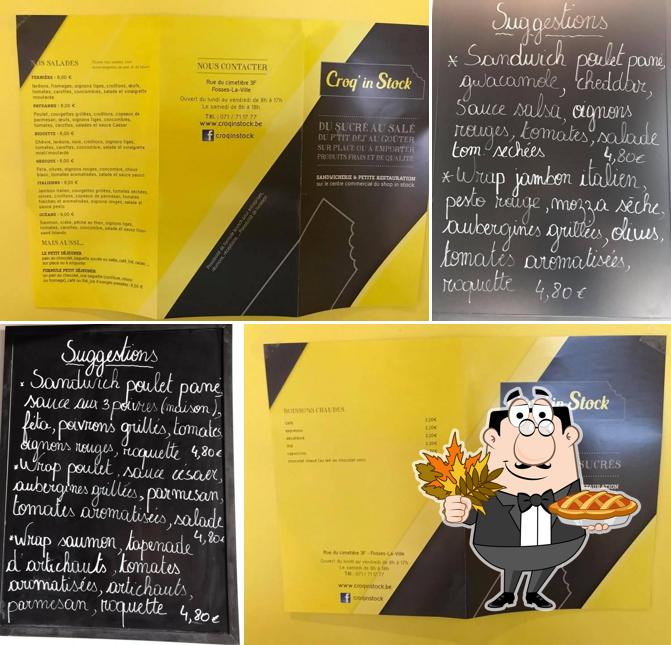 NOS SALADES
FERMIÈRE : 8,00 €
lardons, fromages, oignons tiges, croûtons, œufs,
tomates, carottes, concombres, salade et vinaigrette
moutarde
PAYSANNE : 8,00 €
Poulet, courgettes grillées, croûtons, copeaux de
parmesan, œufs, oignons tiges, concombres,
tomates, carottes, salades et sauce Caesar
BIQUETTE : 8,00 €
Chèvre, lardons, noix, croûtons, oignons tiges,
tomates, carottes, concombre, salade et vinaigrette
miel/moutarde
GRECQUE : 8,00 €
Feta, olives, oignons rouges, concombre, choux
blanc, tomates aromatisées, salade et sauce pesto
ITALIENNE : 8,00 €
Jambon italien, courgettes grillées, tomates séchées,
olives, croûtons, copeaux de parmesan, tomates
fraiches et aromatisées, oignons rouges, salade et
sauce pesto
OCÉANE : 9,00 €
MAIS AUSSI...
LE PETIT DÉJEUNER
FORMULE PETIT DÉJEUNER
NOUS CONTACTER
Rue du cimetière 3F
Fosses-La-Ville
Ouvert du lundi au vendredi de 8h à 17h
Le samedi de 8h à 18h
TÉL : 071 / 71 17 77
www.croqinstock.be
croqinstock
Croq' in Stock
DU SUCRÉ AU SALÉ
DU P'TIT DÉJ' AU GOÛTER
SUR PLACE OU À EMPORTER
PRODUITS FRAIS ET DE QUALITÉ
SANDWICHERIE & PETITE RESTAURATION
sur le centre commercial du shop in stock
Suggestions
* Sandwich poulet pané,
guacamole, cheddar,
sauce salsa, oignons
rouges, tomates, salade
tom séchées 4,80€
* Wrap jambon italien,
pesto rouge, mozza séché,
aubergines grillées, olives,
tomates aromatisées,
roquette 4,80€
Suggestions
* Sandwich poulet pané
sauce aux 3 poivres (maison),
féta, poivrons grillés, tomates
oignons rouges, roquette 4,80€
* Wrap poulet, sauce césaer,
aubergines grillées, parmesan,
tomates aromatisées, salade
4,80€
* Wrap saumon, tapenade
d'artichauts, tomates
aromatisées, artichauts,
parmesan, roquette 4,80€
BOISSONS CHAUDES
café 2,20€
expresso 2,20€
décaféiné 2,20€
thé 2,20€
cappuccino
chocolat chaud (au lait ou chocolat noir)
Rue du cimetière 3F - Fosses-La-Ville
Ouvert du lundi au vendredi de 8h à 17h
Le samedi de 8h à 18h
TÉL : 071 / 71 17 77
www.croqinstock.be
croqinstock
in Stock
SUCRÉS